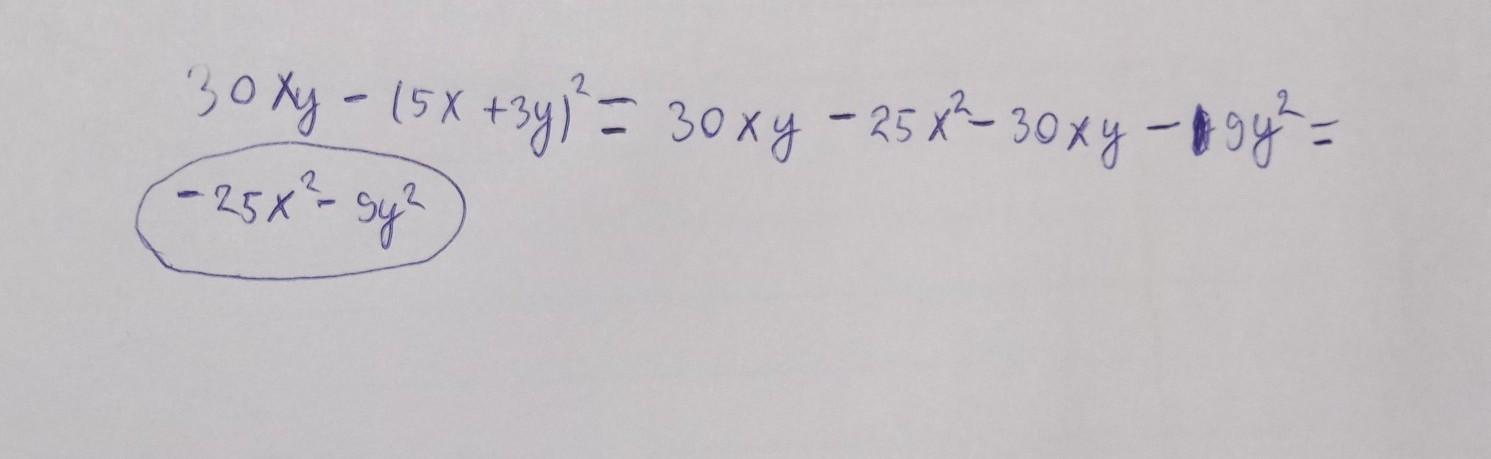 30xy - (5x + 3y)² = 30xy - 25x² - 30xy - 9y² =
- 25x² - 9y²